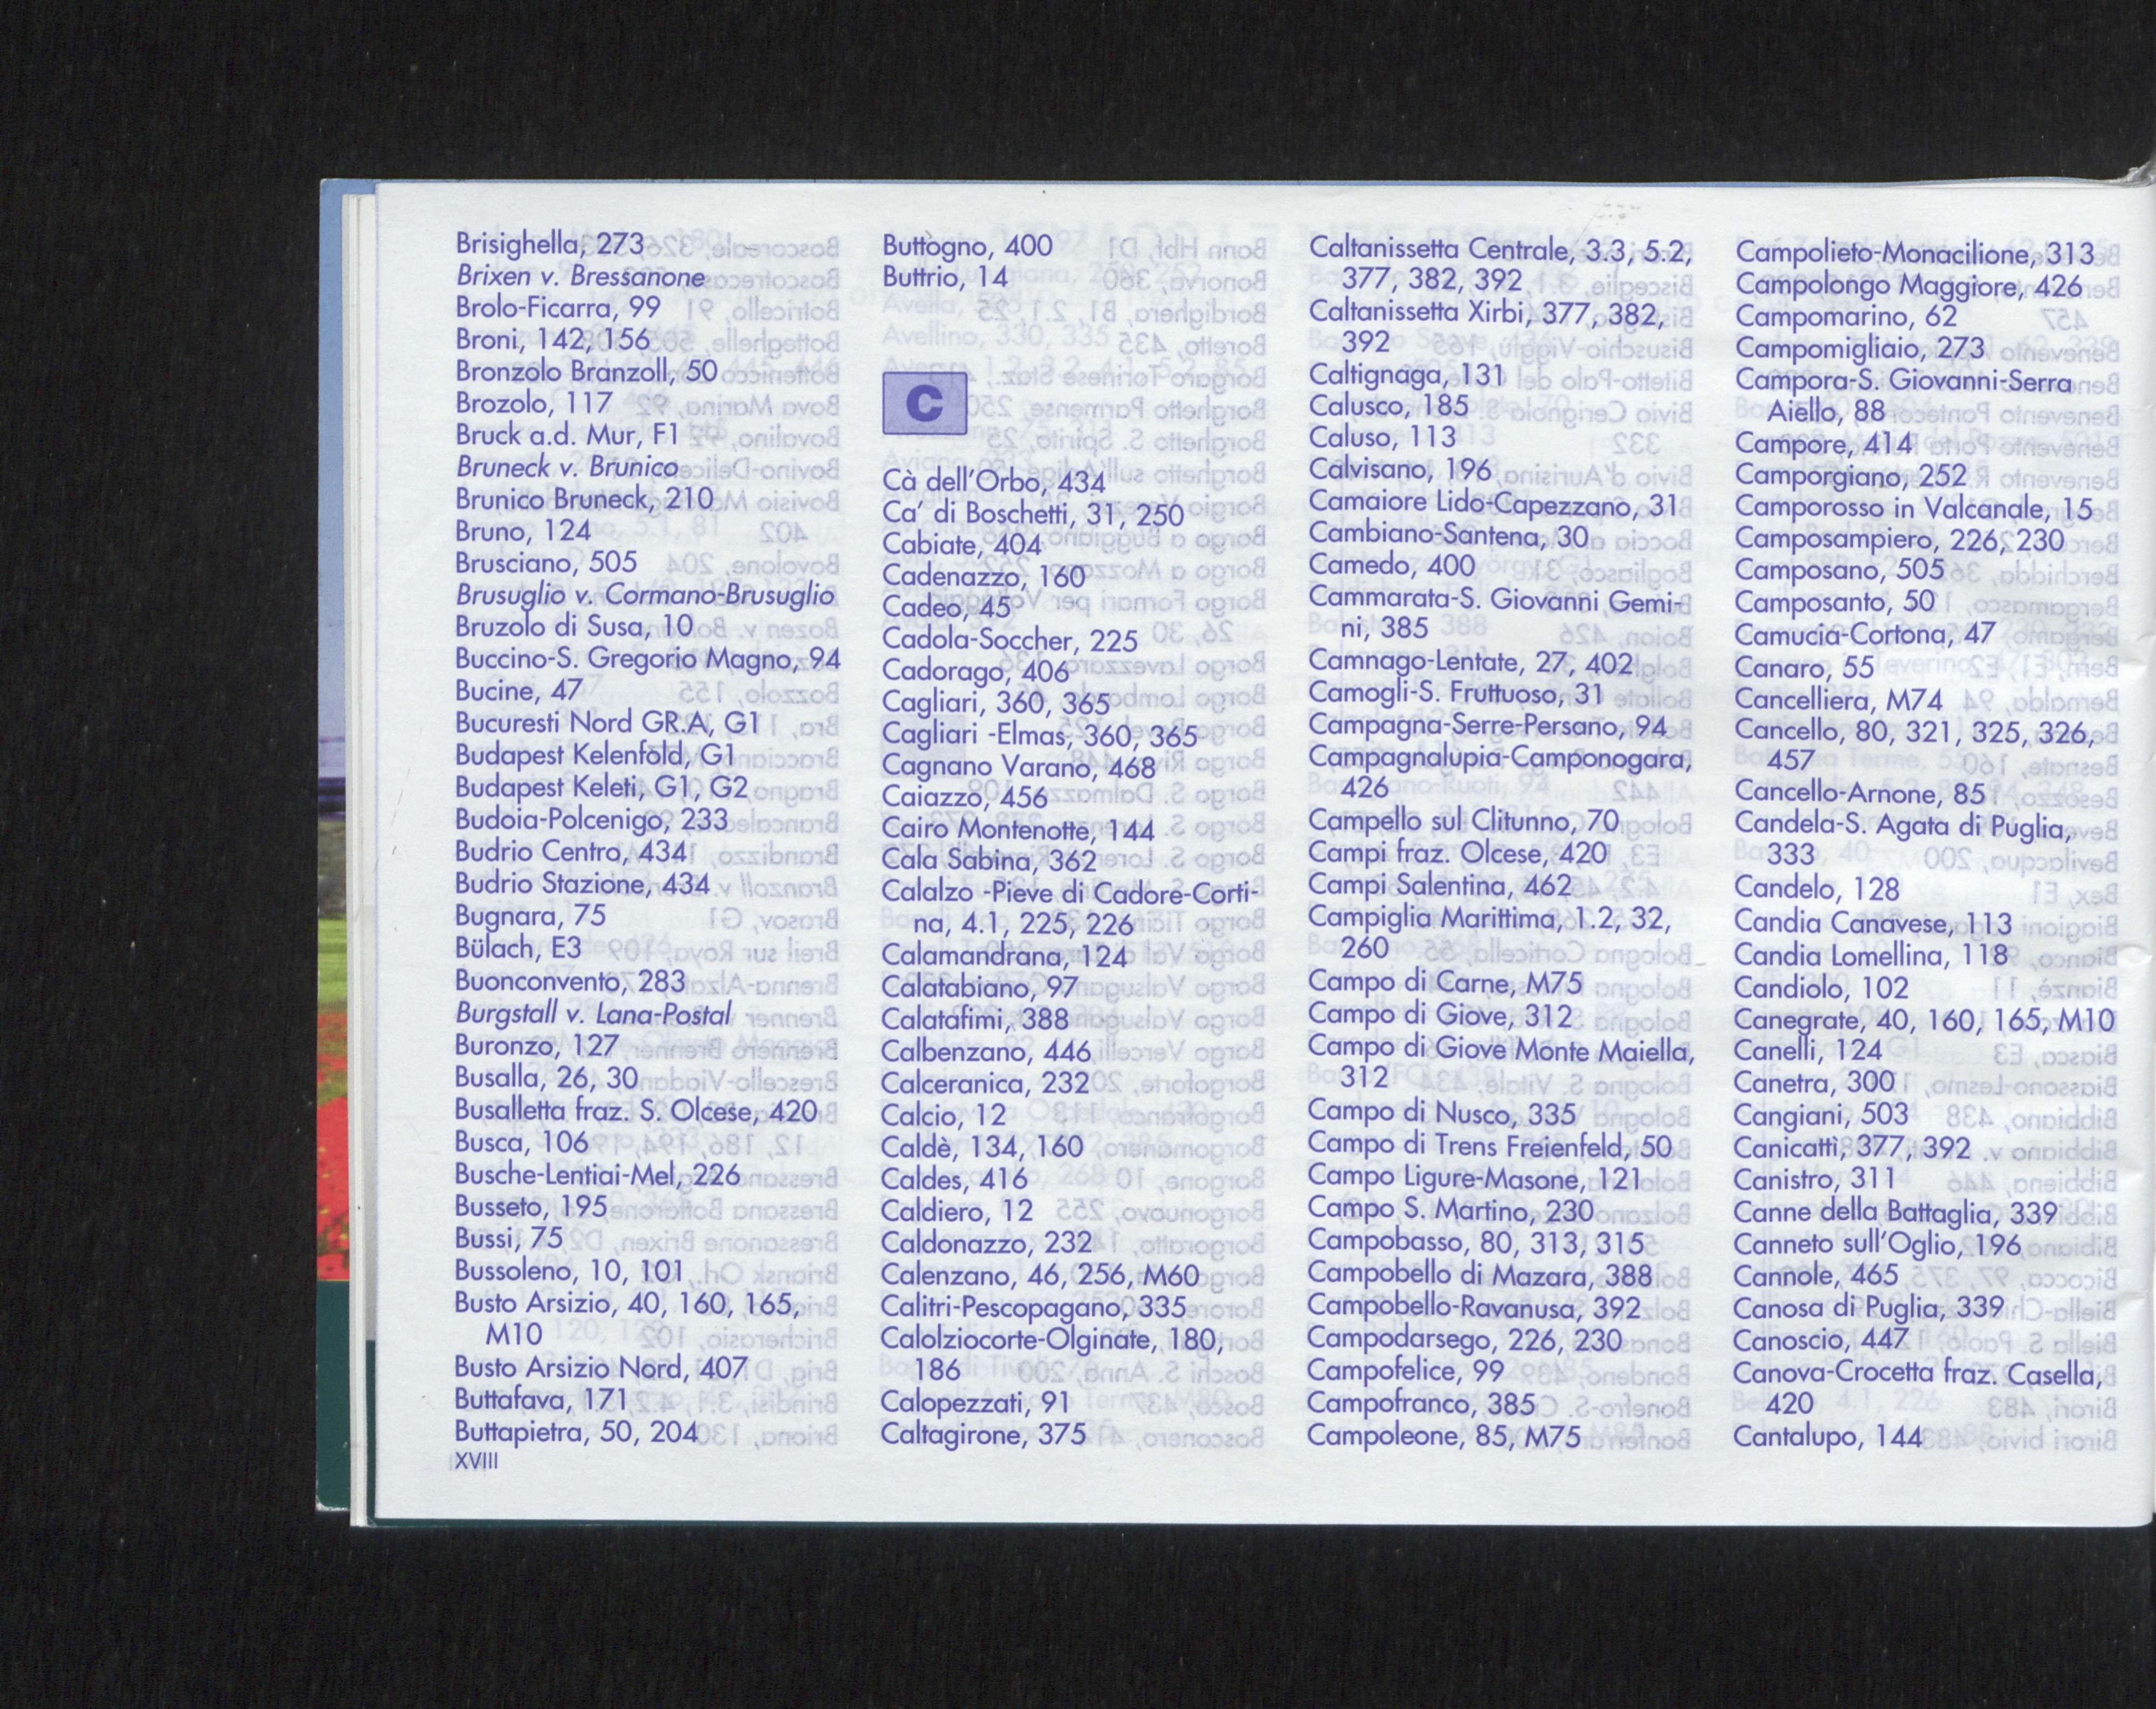 Brisighella, 273
Brixen v. Bressanone
Brolo-Ficarra, 99
Broni, 142, 156
Bronzolo Branzoll, 50
Brozolo, 117
Bruck a.d. Mur, F1
Bruneck v. Brunico
Brunico Bruneck, 210
Bruno, 124
Brusciano, 505
Brusuglio v. Cormano-Brusuglio
Bruzolo di Susa, 10
Buccino-S. Gregorio Magno, 94
Bucine, 47
Bucuresti Nord GR.A, G1
Budapest Kelenfold, G1
Budapest Keleti, G1, G2
Budoia-Polcenigo, 233
Budrio Centro, 434
Budrio Stazione, 434
Bugnara, 75
Bülach, E3
Buonconvento, 283
Burgstall v. Lana-Postal
Buronzo, 127
Busalla, 26, 30
Busalletta fraz. S. Olcese, 420
Busca, 106
Busche-Lentiai-Mel, 226
Busseto, 195
Bussi, 75
Bussoleno, 10, 101
Busto Arsizio, 40, 160, 165,
M10
Busto Arsizio Nord, 407
Buttafava, 171
Buttapietra, 50, 204
XVIII
Buttogno, 400
Buttrio, 14
C
Cà dell'Orbo, 434
Ca' di Boschetti, 31, 250
Cabiate, 404
Cadenazzo, 160
Cadeo, 45
Cadola-Soccher, 225
Cadorago, 406
Cagliari, 360, 365
Cagliari -Elmas, 360, 365
Cagnano Varano, 468
Caiazzo, 456
Cairo Montenotte, 144
Cala Sabina, 362
Calalzo -Pieve di Cadore-Corti-
na, 4.1, 225, 226
Calamandrana, 124
Calatabiano, 97
Calatafimi, 388
Calbenzano, 446
Calceranica, 232
Calcio, 12
Caldè, 134, 160
Caldes, 416
Caldiero, 12
Caldonazzo, 232
Calenzano, 46, 256, M60
Calitri-Pescopagano, 335
Calolziocorte-Olginate, 180,
186
Calopezzati, 91
Caltagirone, 375
Caltanissetta Centrale, 3.3, 5.2,
377, 382, 392
Caltanissetta Xirbi, 377, 382,
392
Caltignaga, 131
Calusco, 185
Caluso, 113
Calvisano, 196
Camaiore Lido-Capezzano, 31
Cambiano-Santena, 30
Camedo, 400
Cammarata-S. Giovanni Gemi-
ni, 385
Camnago-Lentate, 27, 402
Camogli-S. Fruttuoso, 31
Campagna-Serre-Persano, 94
Campagnalupia-Camponogara,
426
Campello sul Clitunno, 70
Campi fraz. Olcese, 420
Campi Salentina, 462
Campiglia Marittima, 1.2, 32,
260
Campo di Carne, M75
Campo di Giove, 312
Campo di Giove Monte Maiella,
312
Campo di Nusco, 335
Campo di Trens Freienfeld, 50
Campo Ligure-Masone, 121
Campo S. Martino, 230
Campobasso, 80, 313, 315
Campobello di Mazara, 388
Campobello-Ravanusa, 392
Campodarsego, 226, 230
Campofelice, 99
Campofranco, 385
Campoleone, 85, M75
Campolieto-Monacilione, 313
Campolongo Maggiore, 426
Campomarino, 62
Campomigliaio, 273
Campora-S. Giovanni-Serra
Aiello, 88
Campore, 414
Camporgiano, 252
Camporosso in Valcanale, 15
Camposampiero, 226, 230
Camposano, 505
Camposanto, 50
Camucia-Cortona, 47
Canaro, 55
Cancelliera, M74
Cancello, 80, 321, 325, 326,
457
Cancello-Arnone, 85
Candela-S. Agata di Puglia,
333
Candelo, 128
Candia Canavese, 113
Candia Lomellina, 118
Candiolo, 102
Canegrate, 40, 160, 165, M10
Canelli, 124
Canetra, 300
Cangiani, 503
Canicattì, 377, 392
Canistro, 311
Canne della Battaglia, 339
Canneto sull'Oglio, 196
Cannole, 465
Canosa di Puglia, 339
Canoscio, 447
Canova-Crocetta fraz. Casella,
420
Cantalupo, 144